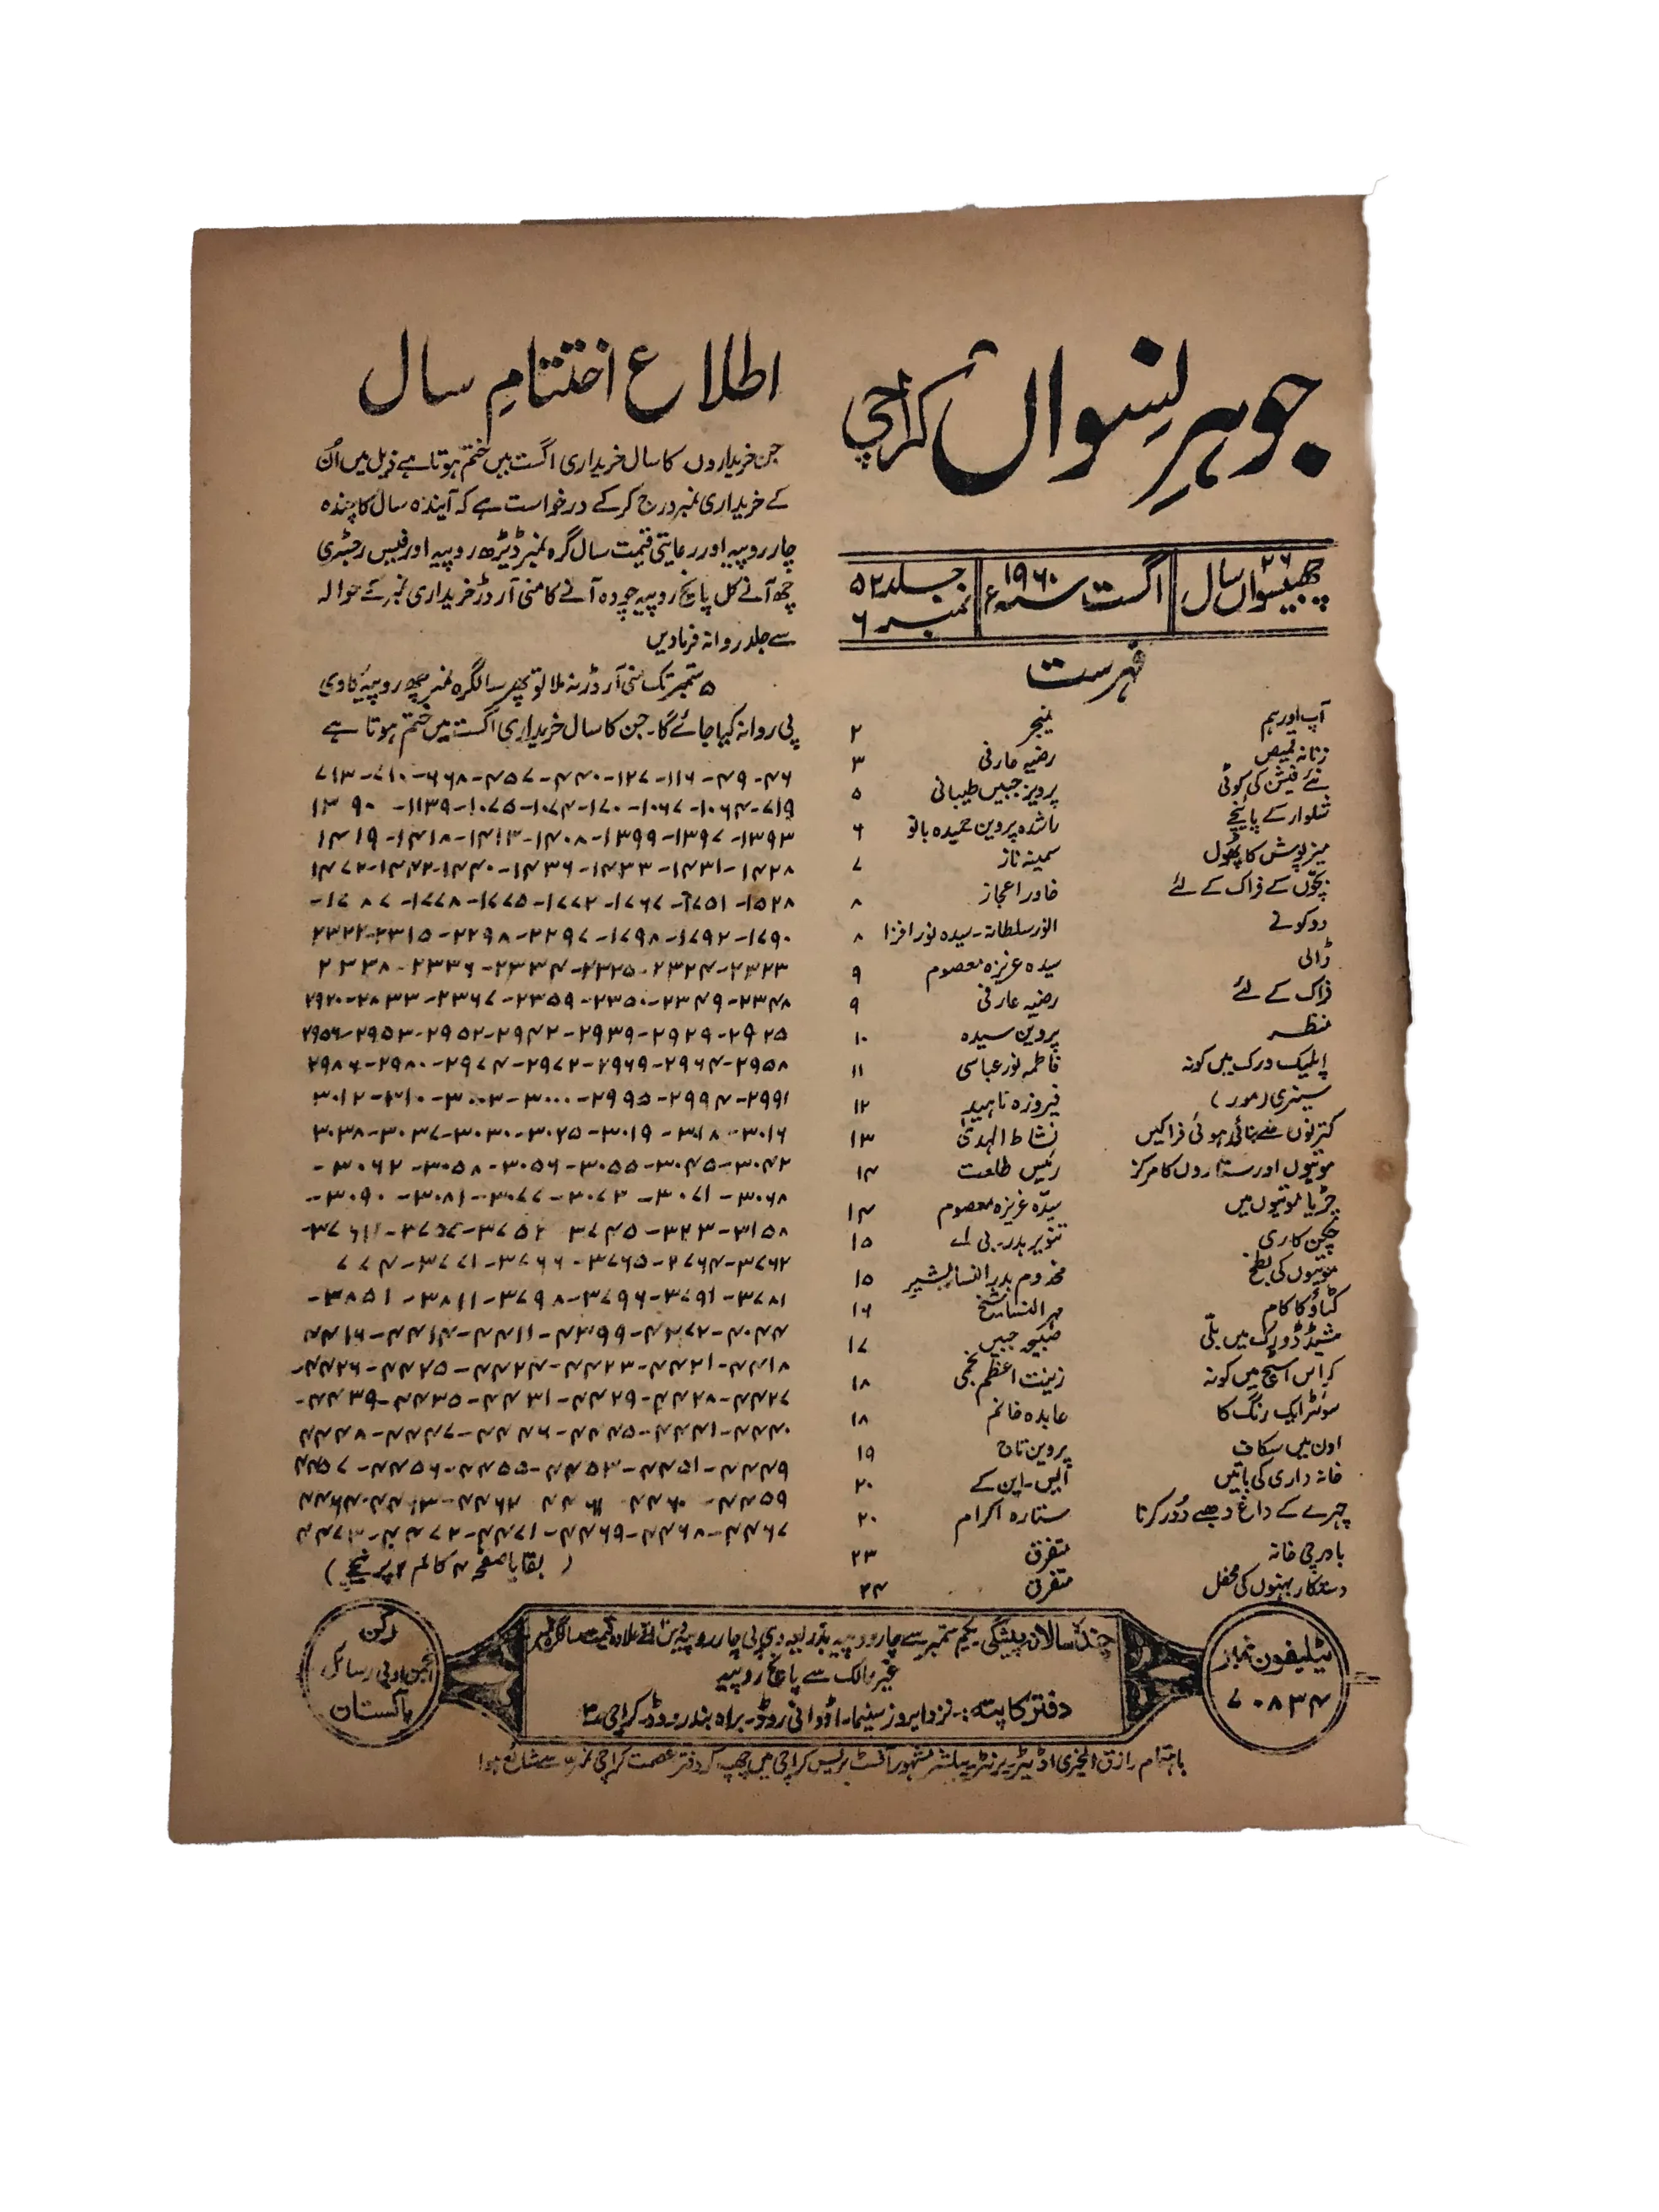 جوہرِ نسواں کراچی
چھبیسواں سال ۲۶
اگست سنہ ۱۹۶۰ء
جلد ۵۲
نمبر ۶
فہرست
آپ اور ہم منیجر ۲
زنانہ قمیص رضیہ عارفی ۳
نئے فیشن کی کوٹی پرویز جبیں طیبانی ۵
شلوار کے پائنچے راشدہ پروین حمیدہ بانو ۶
میز پوش کا پھول سمینہ ناز ۷
بچّوں کے فراک کے لئے خاور اعجاز ۸
دو کونے انور سلطانہ - سیدہ نور افزا ۸
ڈالی سیدہ عزیزہ معصوم ۹
فراک کے لئے رضیہ عارفی ۹
منظر پروین سیدہ ۱۰
اپلیک ورک میں کونہ فاطمہ نور عباسی ۱۱
سینری (مور) فیروزہ ناہید ۱۲
کترنوں سے بنائی ہوئی فراکیں نشاط الہدیٰ ۱۳
موتیوں اور ستاروں کا مرکز رئیس طلعت ۱۴
چڑیا موتیوں میں سیدّہ عزیزہ معصوم ۱۴
چکن کاری تنویر بدر۔ بی اے ۱۵
موتیوں کی بطخ مخدوم بدر النسا بشیر ۱۵
کٹاؤ کا کام مہر النسا شیخ ۱۶
شیڈڈ ورک میں بلّی صبیحہ جبیں ۱۷
کراس اسٹیچ میں کونہ زینت اعظم نجمی ۱۸
سوئٹر ایک رنگ کا عابدہ خانم ۱۸
اون میں سکاف پروین تاج ۱۹
خانہ داری کی باتیں ایس - این کے ۲۰
چہرے کے داغ دھبے دُور کرنا ستارہ اکرام ۲۰
باورچی خانہ متفرق ۲۳
دستکار بہنوں کی محفل متفرق ۲۴
اطلاع اختتامِ سال
جن خریداروں کا سال خریداری اگست میں ختم ہوتا ہے ذیل میں اُن
کے خریداری نمبر درج کرکے درخواست ہے کہ آیندہ سال کا چندہ
چار روپیہ اور رعایتی قیمت سال گرہ نمبر ڈیڑھ روپیہ اور فیس رجسٹری
چھ آنے کل پانچ روپیہ چودہ آنے کا منی آرڈر خریداری نمبر کے حوالہ
سے جلد روانہ فرمادیں
۵ ستمبر تک منی آرڈر نہ ملا تو پھر سالگرہ نمبر چھ روپیہ کا وی
پی روانہ کیا جائے گا۔ جن کا سال خریداری اگست میں ختم ہوتا ہے
۴۶-۴۹-۱۱۶-۱۲۷-۴۴۰-۴۵۷-۶۶۸-۷۱۰-۷۱۳
۷۱۹-۱۰۶۴-۱۰۶۷-۱۰۷۰-۱۰۷۴-۱۰۷۵-۱۱۳۹- ۱۳۹۰
۱۳۹۳-۱۳۹۷-۱۳۹۹-۱۴۰۸-۱۴۱۳-۱۴۱۸-۱۴۱۹
۱۴۲۸-۱۴۳۱-۱۴۳۳-۱۴۳۶-۱۴۴۰-۱۴۴۲-۱۴۷۲
۱۵۲۸-۱۷۵۱-۱۷۶۷-۱۷۷۲-۱۷۷۵-۱۷۷۸-۱۷۸۷-
۱۷۹۰-۱۷۹۲-۱۷۹۸-۲۲۹۷-۲۲۹۸-۲۳۱۵-۲۳۲۲
۲۳۲۳-۲۳۲۴-۲۳۲۵-۲۳۳۴-۲۳۳۶-۲۳۳۸
۲۳۴۸-۲۳۴۹-۲۳۵۰-۲۳۵۹-۲۳۶۷-۲۸۳۳-۲۹۲۰
۲۹۲۵-۲۹۲۹-۲۹۳۹-۲۹۴۲-۲۹۵۲-۲۹۵۳-۲۹۵۶
۲۹۵۸-۲۹۶۴-۲۹۶۹-۲۹۷۲-۲۹۷۴-۲۹۸۰-۲۹۸۶
۲۹۹۱-۲۹۹۴-۲۹۹۵-۳۰۰۰-۳۰۰۳-۳۰۱۰-۳۰۱۲
۳۰۱۶-۳۰۱۸-۳۰۱۹-۳۰۲۵-۳۰۳۰-۳۰۳۷-۳۰۳۸
۳۰۴۲-۳۰۴۵-۳۰۵۵-۳۰۵۶-۳۰۵۸-۳۰۶۲-
۳۰۶۸-۳۰۷۱-۳۰۷۲-۳۰۷۷-۳۰۸۱-۳۰۹۰-
۳۱۵۸-۳۲۳-۳۷۴۵ ۳۷۵۲-
۳۷۶۲-۳۷۶۴-۳۷۶۵-۳۷۶۶-۳۷۷۱-
۳۷۸۱-۳۷۹۱-۳۷۹۶-۳۷۹۸-۳۸۱۱-۳۸۵۱-
۴۴۱۱-۴۴۱۴-۴۴۱۶
۴۴۱۸-۴۴۲۱-۴۴۲۳-۴۴۲۴-۴۴۲۵-۴۴۲۶-
۴۴۲۷-۴۴۲۸-۴۴۲۹-۴۴۳۱-۴۴۳۵-۴۴۳۹-
۴۴۴۰-۴۴۴۱-۴۴۴۵-۴۴۴۶-۴۴۴۷-۴۴۴۸
۴۴۴۹-۴۴۵۱-۴۴۵۳-۴۴۵۵-۴۴۵۶-۴۴۵۷
۴۴۵۹- ۴۴۶۲-
۴۴۶۷-۴۴۶۸-۴۴۶۹-۴۴۷۱-۴۴۷۲-
( بقایا صفحہ ۴ کالم ۲ پر نیچے )
ٹیلیفون نمبر
۷۰۸۳۴
چندہ سالانہ پیشگی یکم ستمبر سے چار روپیہ بذریعہ وی پی چار روپیہ تین آنے علاوہ قیمت سالگرہ نمبر
غیر ممالک سے پانچ روپیہ
دفتر کا پتہ:- نزد ایروز سینما۔ اڈوانی روڈ۔ براہ بندر روڈ۔ کراچی ۳
رکن
انجمن ادبی رسائل
پاکستان
باہتمام رازق الخیری اڈیٹر پرنٹر پبلشر مشہور آفسٹ پریس کراچی میں چھپ کر دفتر عصمت کراچی نمبر ۳ سے شائع ہوا